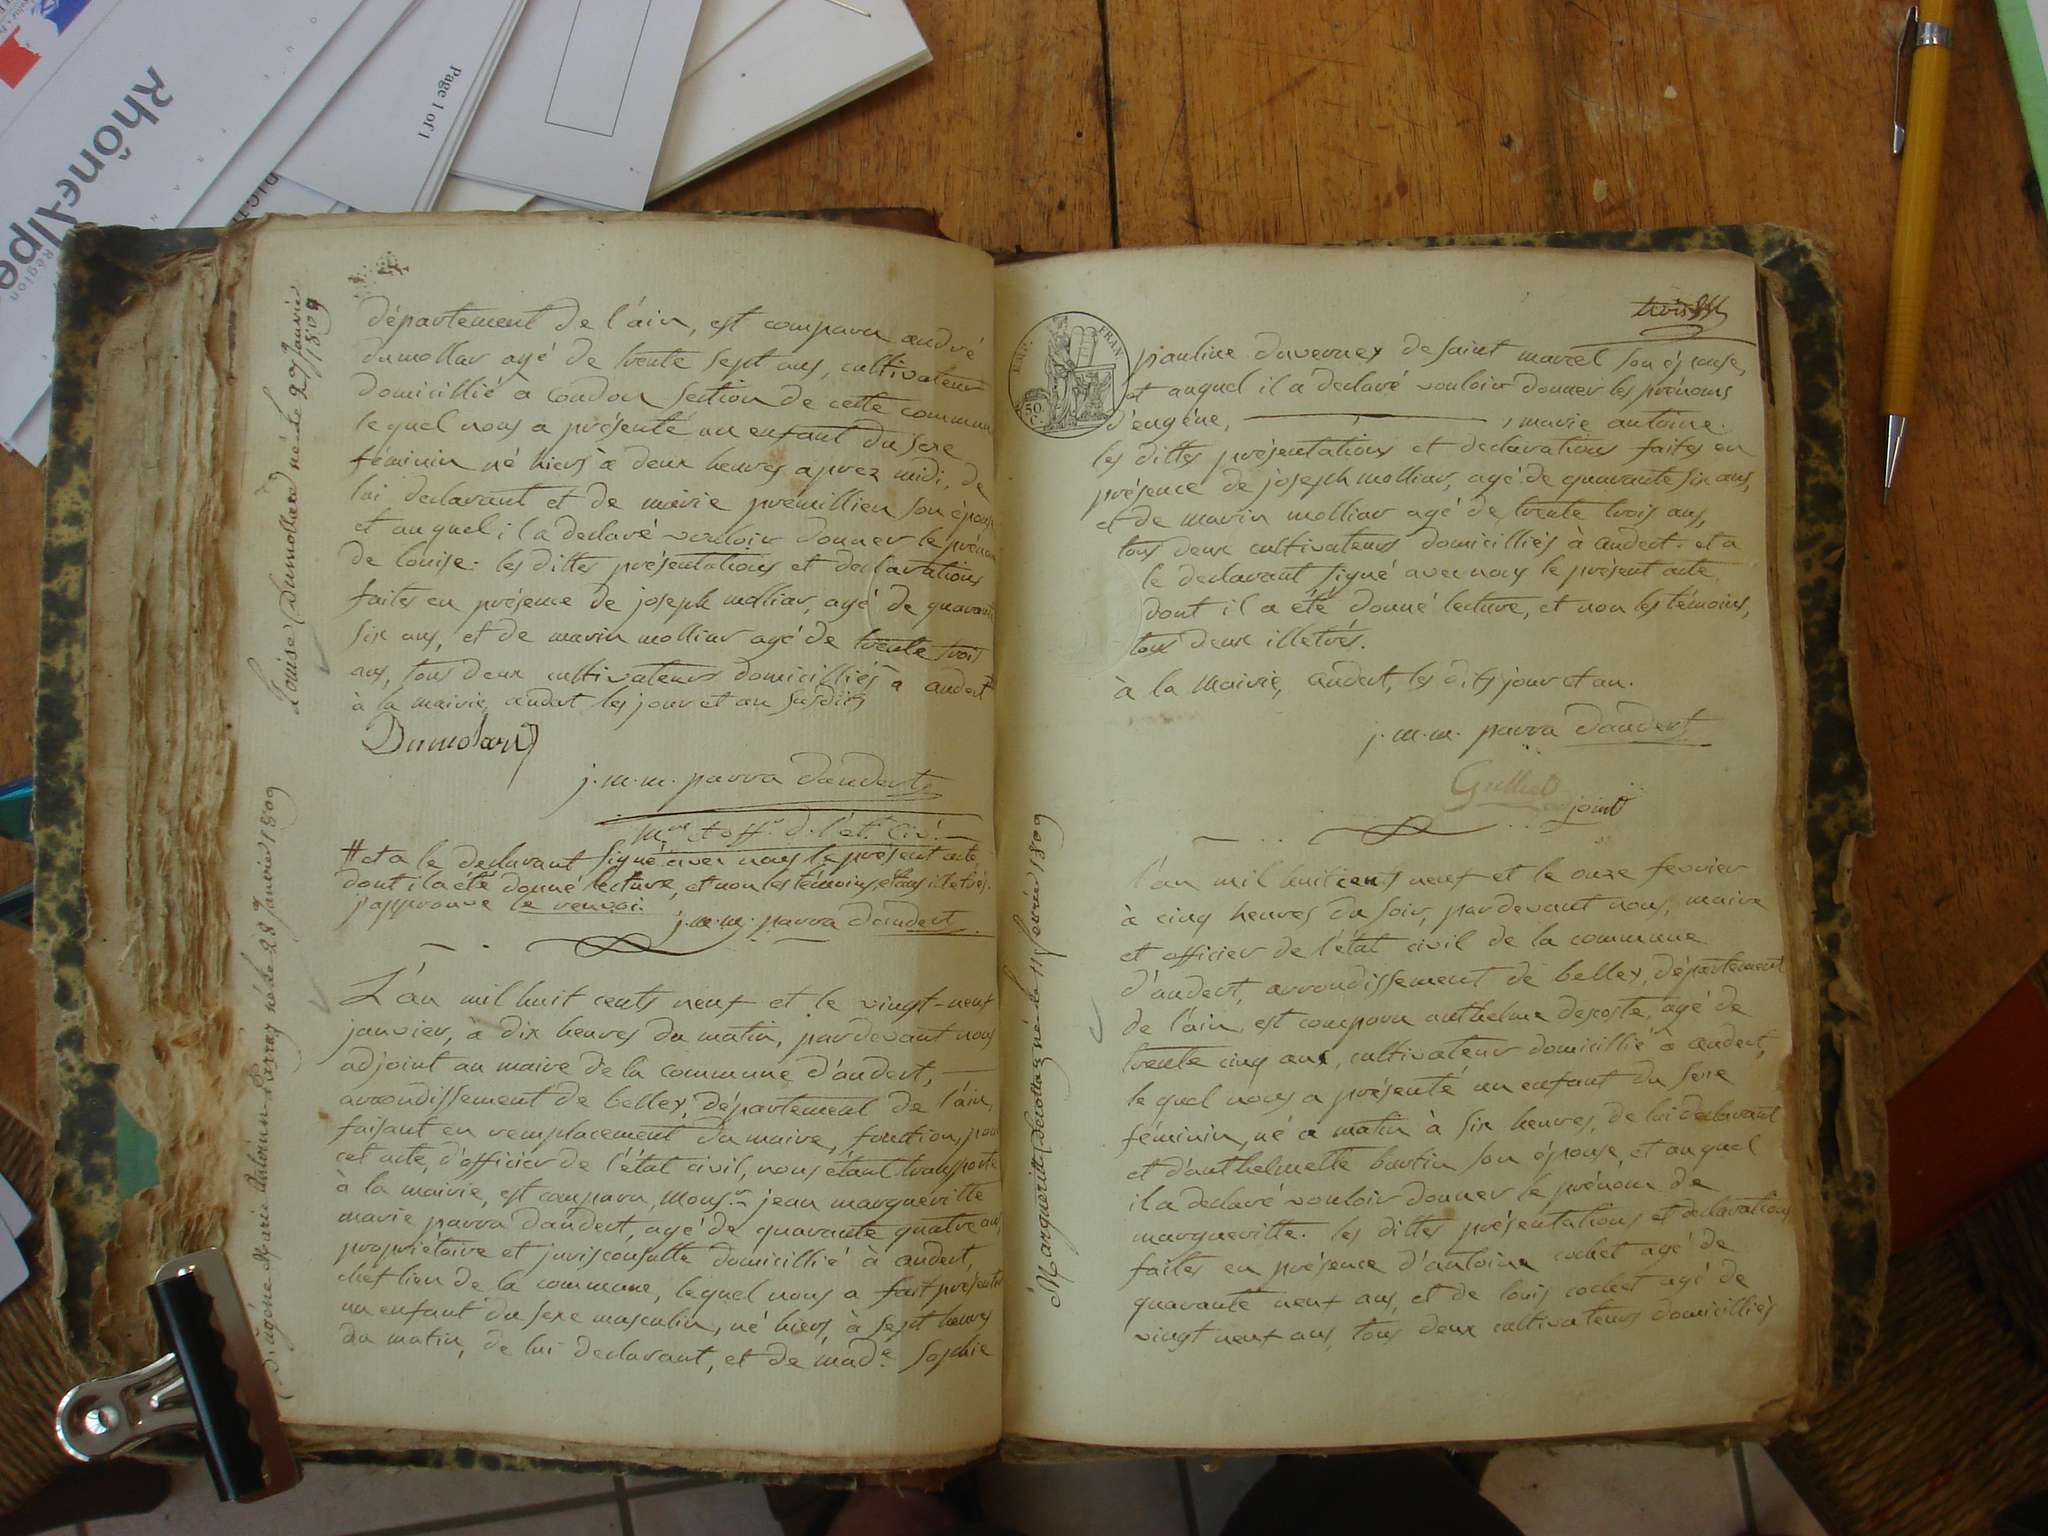 Rhône-Alpes
Région
Page 1 of 1
Louise Dumollard née le 27 janvier 1809
département de l'ain, est comparu andré
dumollar agé de trente sept ans, cultivateur
domicillié a coudon section de cette commune
le quel nous a présenté un enfant du sexe
féminin né hiers à deux heures aprez midi, de
lui declarant et de marie premillieu son épouse
et auquel il a declaré vouloir donner le prénom
de louise. les dittes présentations et declarations
faites en présence de joseph molliar, agé de quarante
six ans, et de marin molliar agé de trente trois
ans, tous deux cultivateurs domicilliés a andert
à la mairie, andert les jour et an susdits
Dumolard
j. m. m. parra dandert
m.re et off.r d. l'ét.t civ.l
# et a le declarant signé avec nous le présent acte,
dont il a été donné lecture, et non les témoins, tous illetrés.
j'approuve le renvoi.
j. m. m. parra dandert
Eugène Marie Antoine Parraz né le 28 janvier 1809
L'an mil huit cents neuf et le vingt-neuf
janvier, à dix heures du matin, pardevant nous
adjoint au maire de la commune d'andert,
arrondissement de belley, département de l'ain,
faisant en remplacement du maire, fonction, pour
cet acte, d'officier de l'état civil, nous étant transporté
à la mairie, est comparu, Mons.r jean margueritte
marie parra dandert, agé de quarante quatre ans,
propriétaire et jurisconsulte domicillié à andert,
chef lieu de la commune, lequel nous a fait présenter
un enfant du sexe masculin, né hiers, à sept heures
du matin, de lui declarant, et de mad.e Sophie
trois
EMP. FRAN
50. C.
pauline duverney de saint marcel son épouse,
et auquel il a declaré vouloir donner les prénoms
d'eugène, , marie antoine.
les dittes présentations et declarations faites en
présence de joseph molliar, agé de quarante six ans,
et de marin molliar agé de trente trois ans,
tous deux cultivateurs domicilliés à andert. et a
le declarant signé avec nous le présent acte,
dont il a été donné lecture, et non les témoins,
tous deux illetrés.
à la mairie, andert, les dits jour et an.
j. m. m. parra dandert
adjoint
Margueritte née le 11 fevrier 1809
l'an mil huit cents neuf et le onze fevrier
à cinq heures du soir, pardevant nous, maire
et officier de l'état civil de la commune
d'andert, arrondissement de belley, département
de l'ain, est comparu anthelme descoste, agé de
trente cinq ans, cultivateur domicillié a andert,
le quel nous a présenté un enfant du sexe
féminin, né ce matin à six heures, de lui declarant
et d'anthelmette bustin son épouse, et auquel
il a declaré vouloir donner le prénom de
marguerite. les dittes présentations et declarations
faites en présence d'antoine cochet agé de
quarante neuf ans, et de louis cochet agé de
vingt neuf ans, tous deux cultivateurs domicilliés